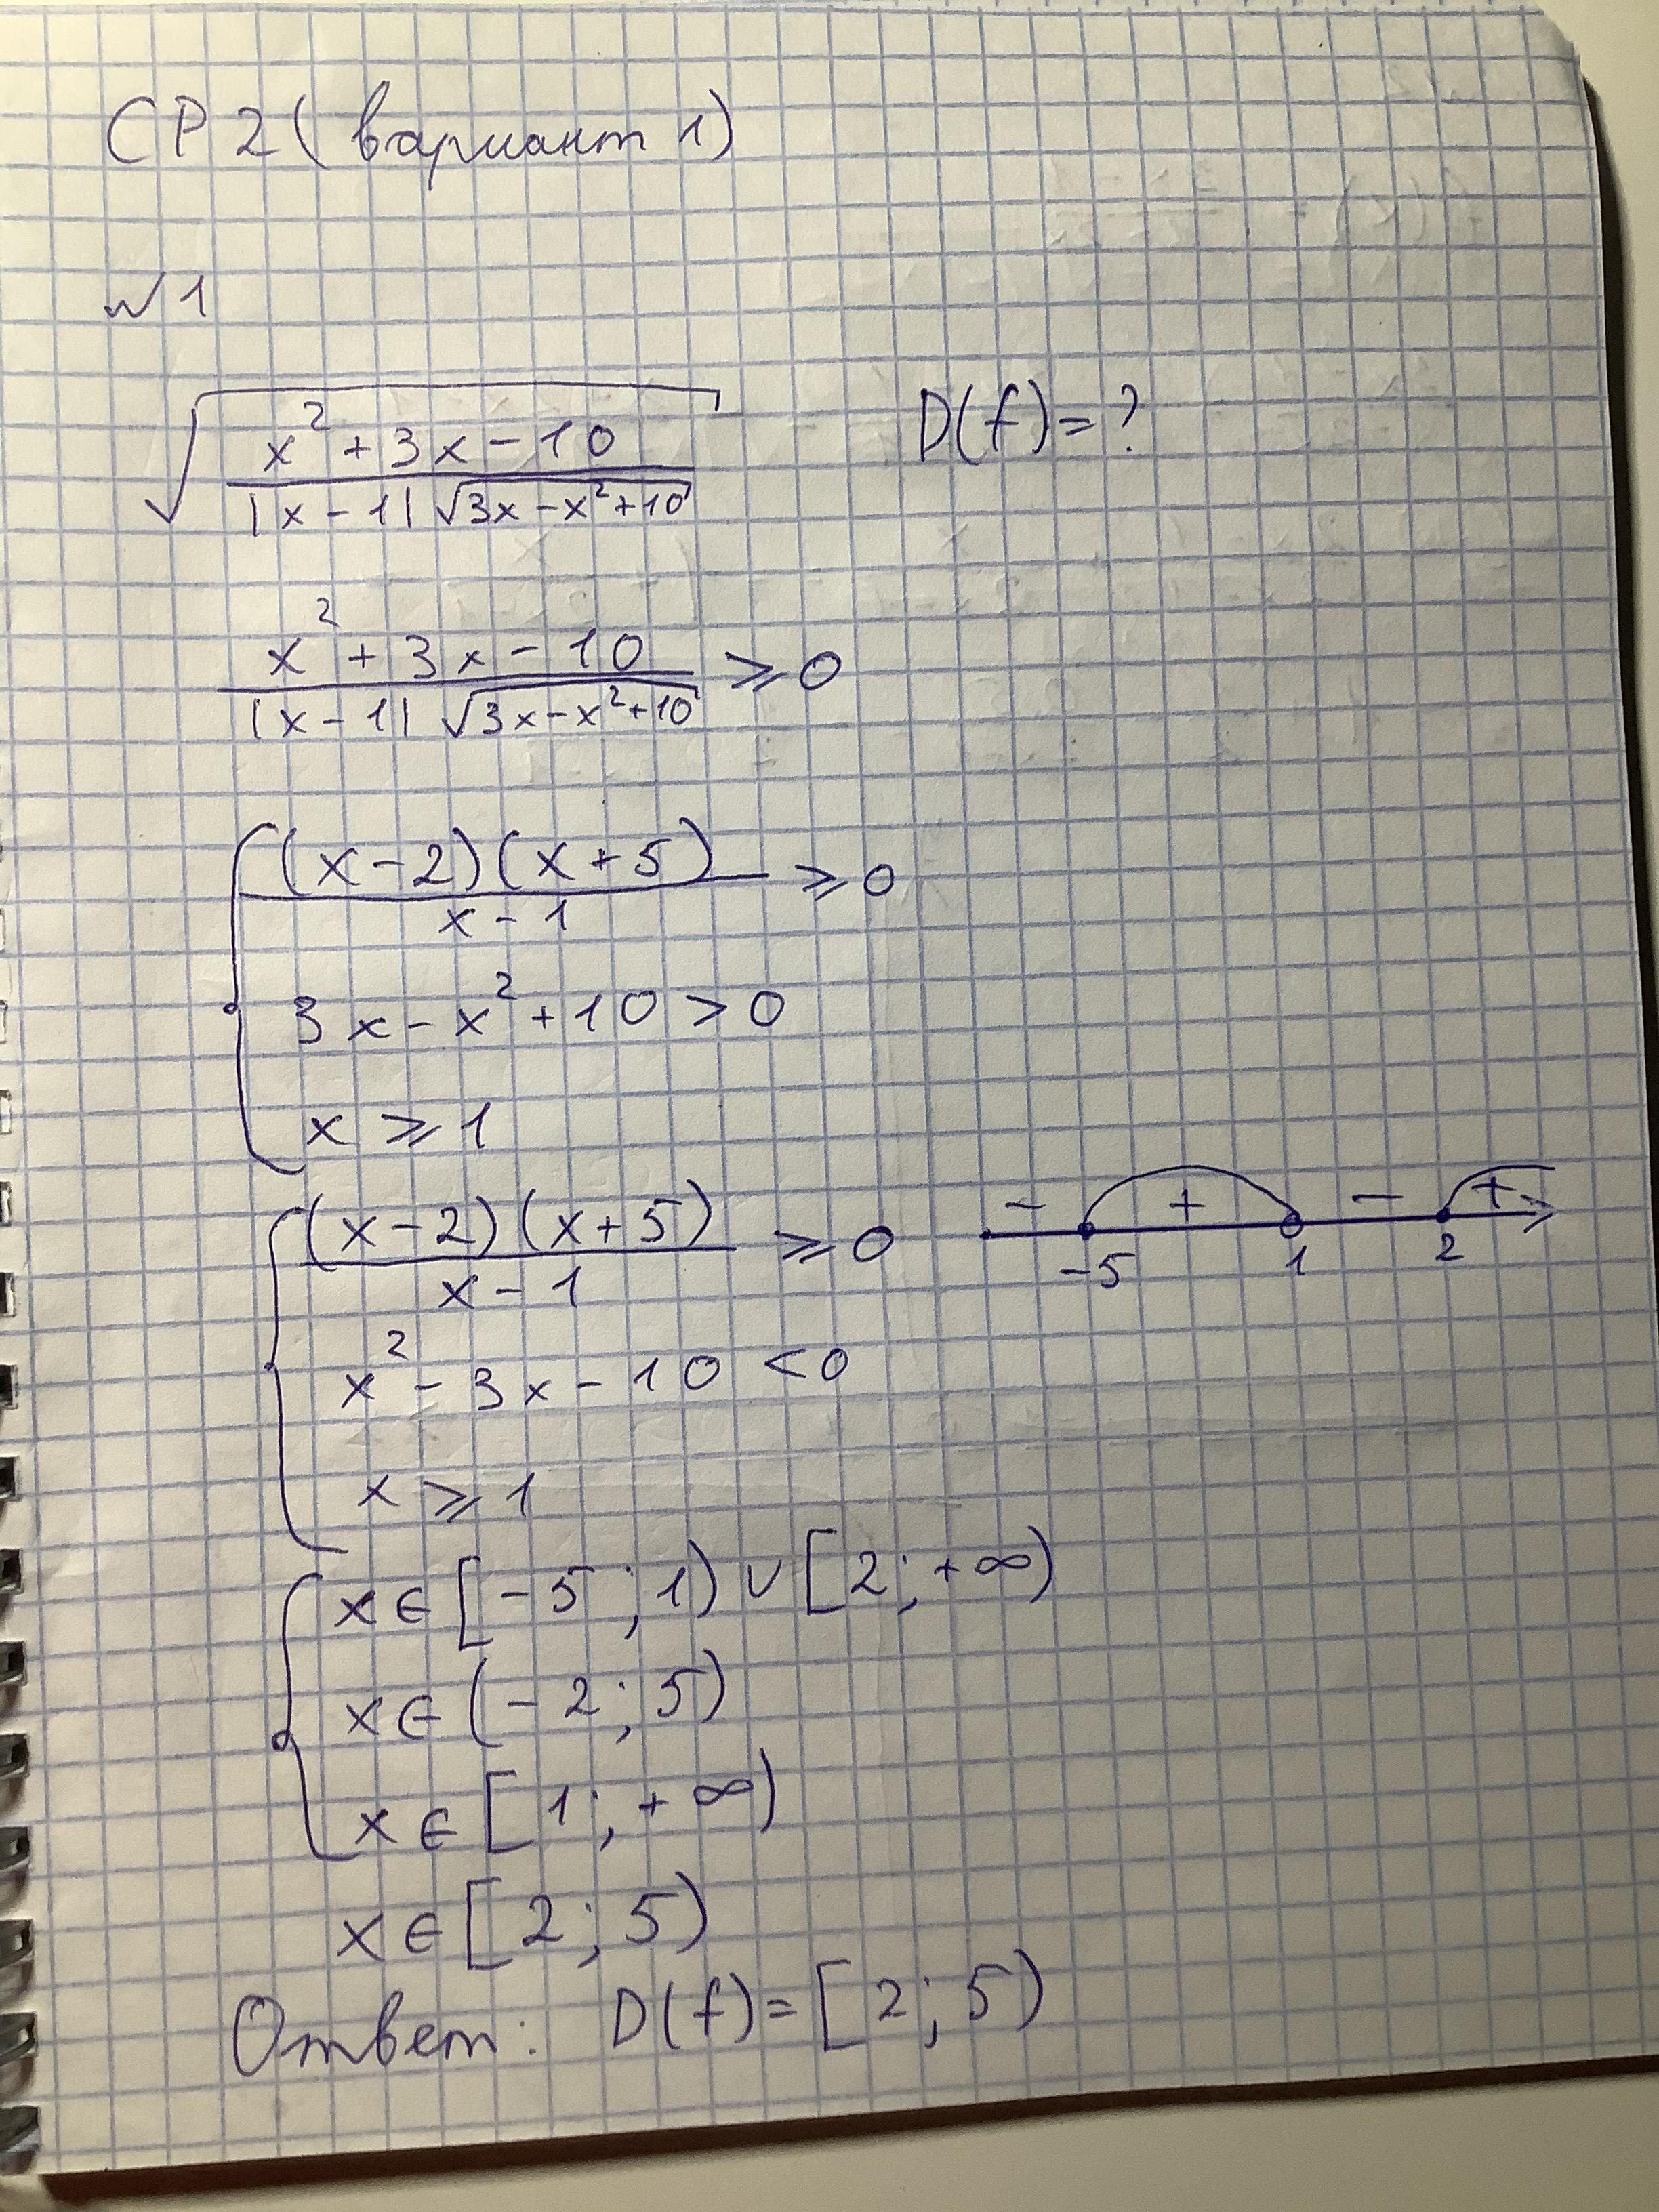 СР 2 (вариант 1)
№ 1
√((x² + 3x - 10)/(|x - 1| √(3x - x² + 10))) D(f) = ?
(x² + 3x - 10)/(|x - 1| √(3x - x² + 10)) ⩾ 0
(x - 2)(x + 5)/(x - 1) ⩾ 0
3x - x² + 10 > 0
x ⩾ 1
(x - 2)(x + 5)/(x - 1) ⩾ 0 - + - +
-5 1 2
x² - 3x - 10 < 0
x ⩾ 1
x ∈ [-5; 1) ∪ [2; +∞)
x ∈ (-2; 5)
x ∈ [1; +∞)
x ∈ [2; 5)
Ответ: D(f) = [2; 5)